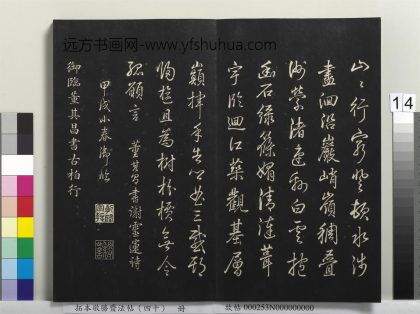 远方书画网- www.yfshuhua.com
山行窮登頓水涉
盡洄沿巖峭嶺稠疊
洲縈渚連綿白雲抱
幽石綠篠媚清漣葺
宇臨迴江築觀基層
巔揮手告鄉曲三載期
歸旋且為樹枌檟無令
孤願言 董其昌書謝靈運詩
甲戌小春御臨
御臨董其昌書古柏行
14
拓本敬勝齋法帖(四十) 册 故帖 000253N000000000